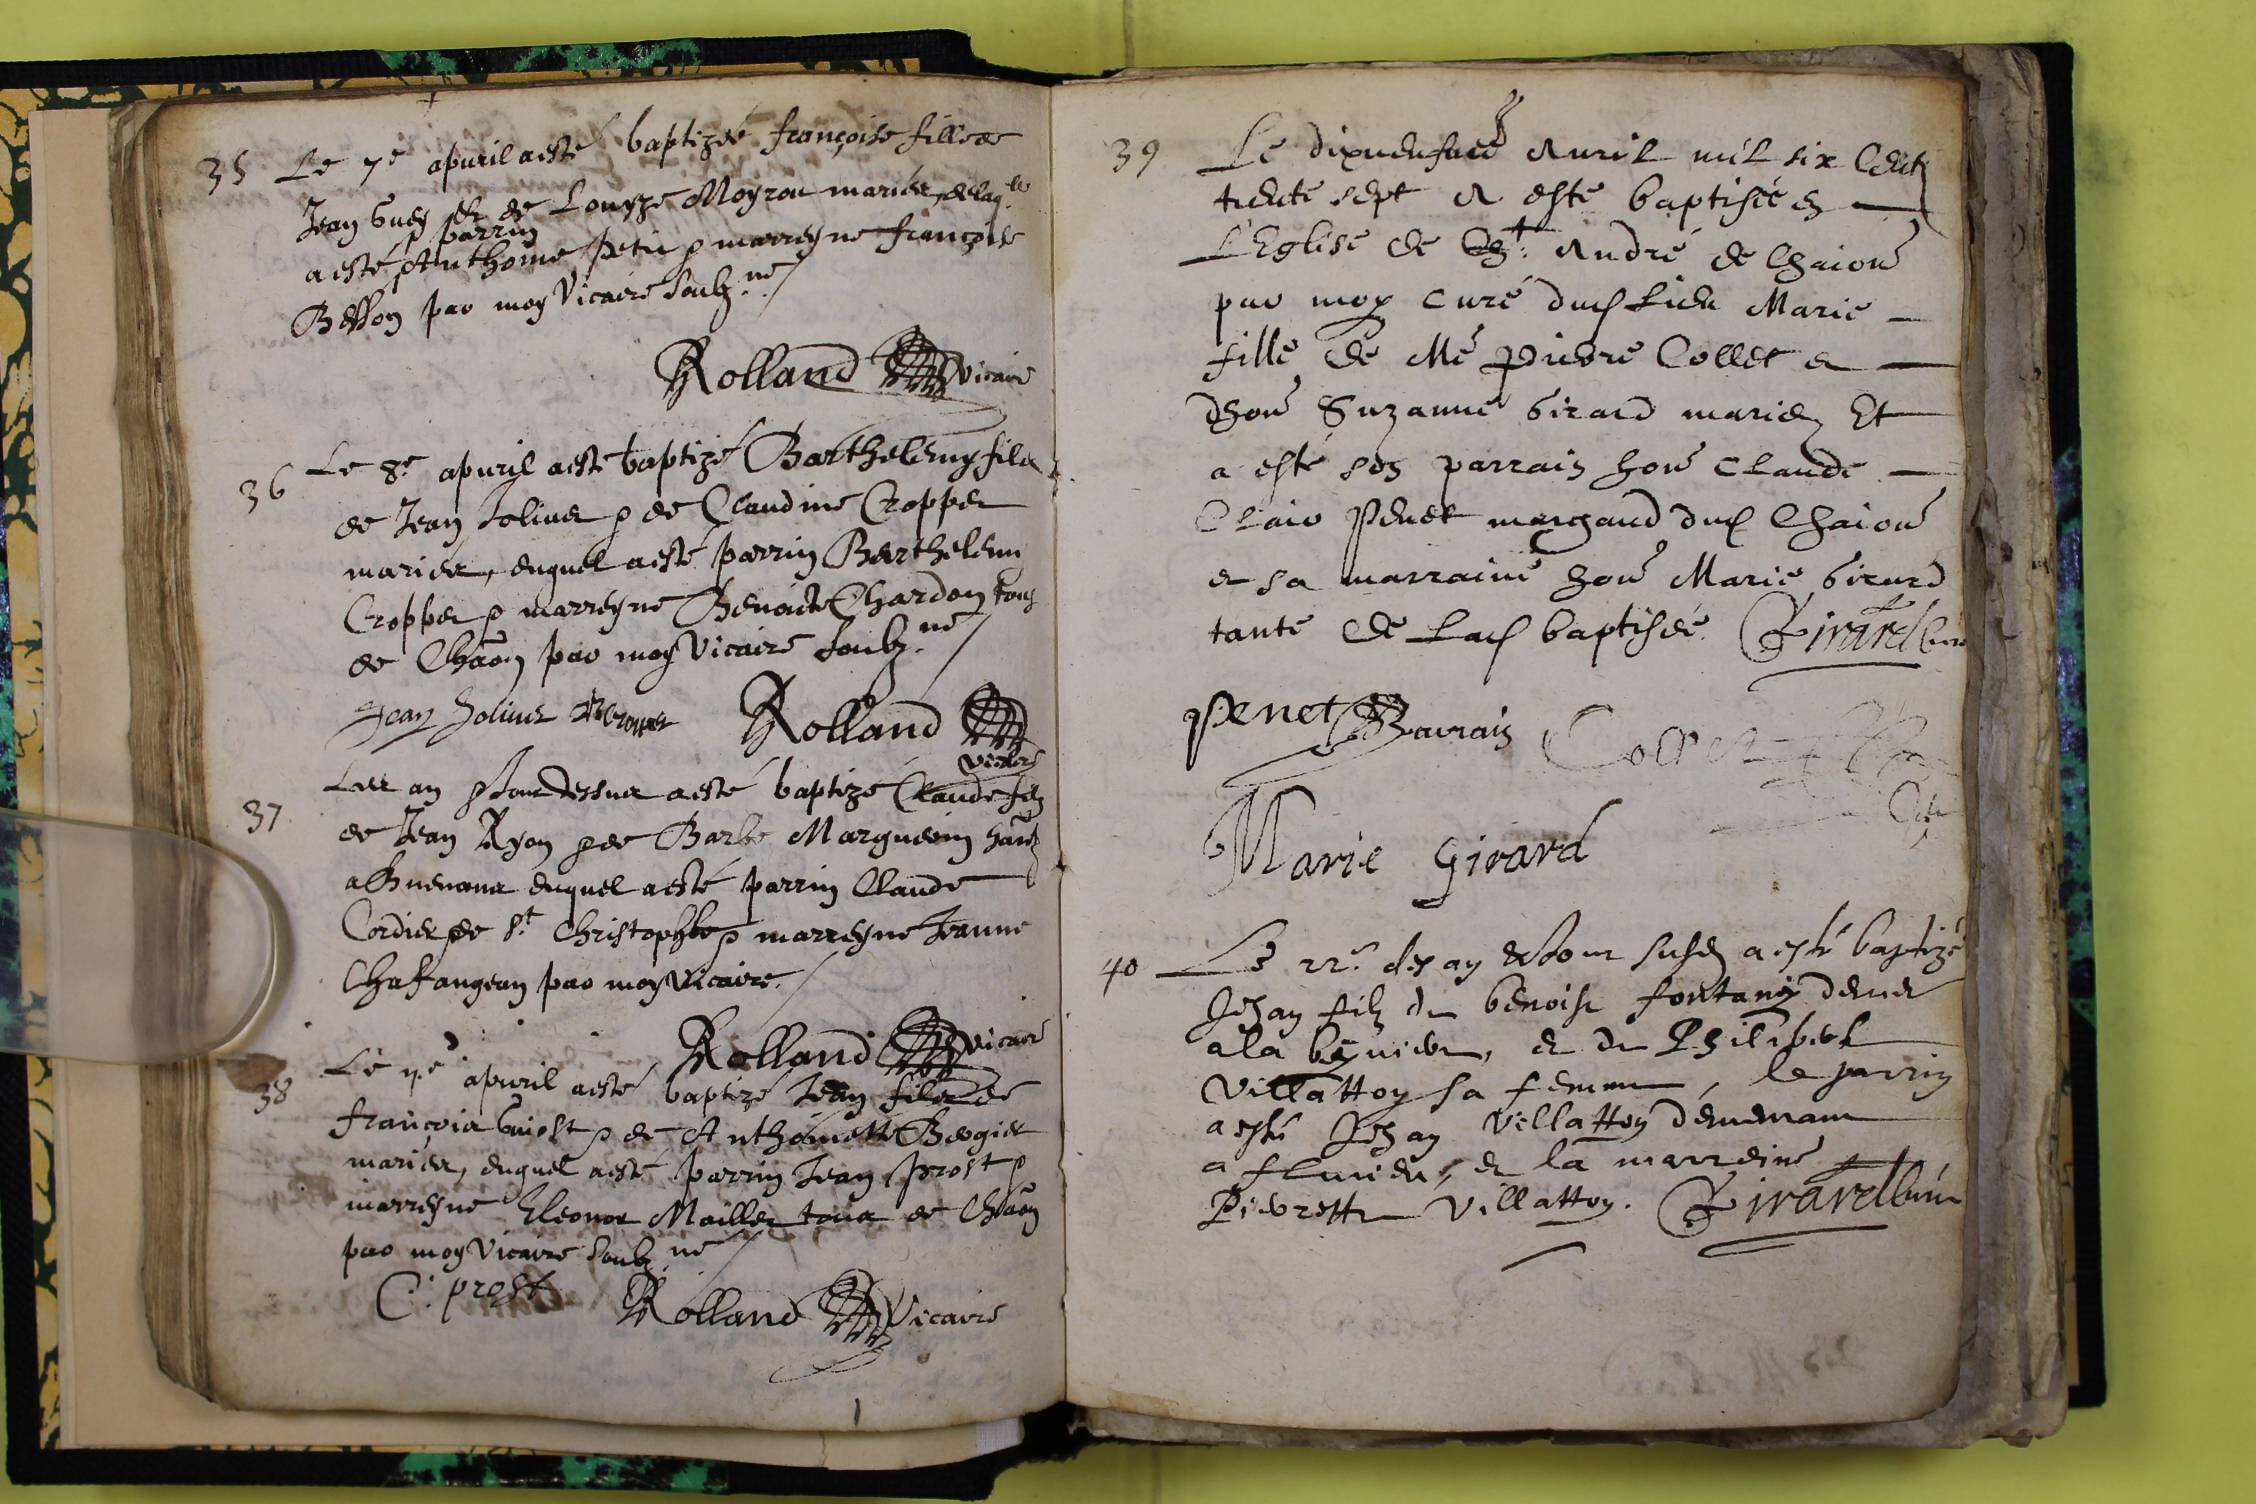 35 Le 7e apuril a esté baptizée françoise fille de
Jean Guey & de Louyze Moyrou mariés, de laq.lle
p parrin
a esté Anthoine Petit & marreyne françoise
Besson par moy Vicaire soubz.né
Rolland Vicaire
36 Le 8e apuril a esté baptizé Barthelemy filz
de Jean Joliuet & de Claudine Cropper
mariés, duquel a esté parrin Barthelemy
Cropper & marreyne Benoiste Chardon tous
de Chaōn par moy Vicaire soubz.né
Jean Joliuet Rolland
Vicaire
37 Les an & Jour dessus a esté baptizé Claude filz
de Jean Ryon & de Barbe Marguerin
duquel a esté parrin Claude
Cordier de St Christophle & marreyne Jeanne
Chafangeon par moy Vicaire.
Rolland Vicaire
38 Le apuril a esté baptizé Jean filz de
françois Guiost & de Anthoinette Bergier
mariés, duquel a esté parrin Jean Prost &
marreyne Eleonor Mailler tous de Chaōn
par moy Vicaire soubz.né
C. prost Rolland Vicaire
39 Le dixneufue Auril mil six Cent
trente sept a esté baptisée en
L'Eglise de St. André de Chaion
par moy curé dud Lieu Marie
fille de Me Pierre Collet &
d'hon Suzanne Girard mariez Et
a esté son parrain hon Claude
Clair Penet marchand dud Chaion
& sa marraine hon Marie Girard
tante de Lad baptisée. Girard Curé
Penet Parrain Collet
Marie Girard
40 Le 22e des an & Jour susd a esté baptizé
Jehan filz de benoist fontany demeu
a la & de Philiberte
Villattoy sa femme, le parrin
a esté Jehan Villattoy demeurant
a flurieu, & la marreine
Pierrette Villattoy. Girard Curé